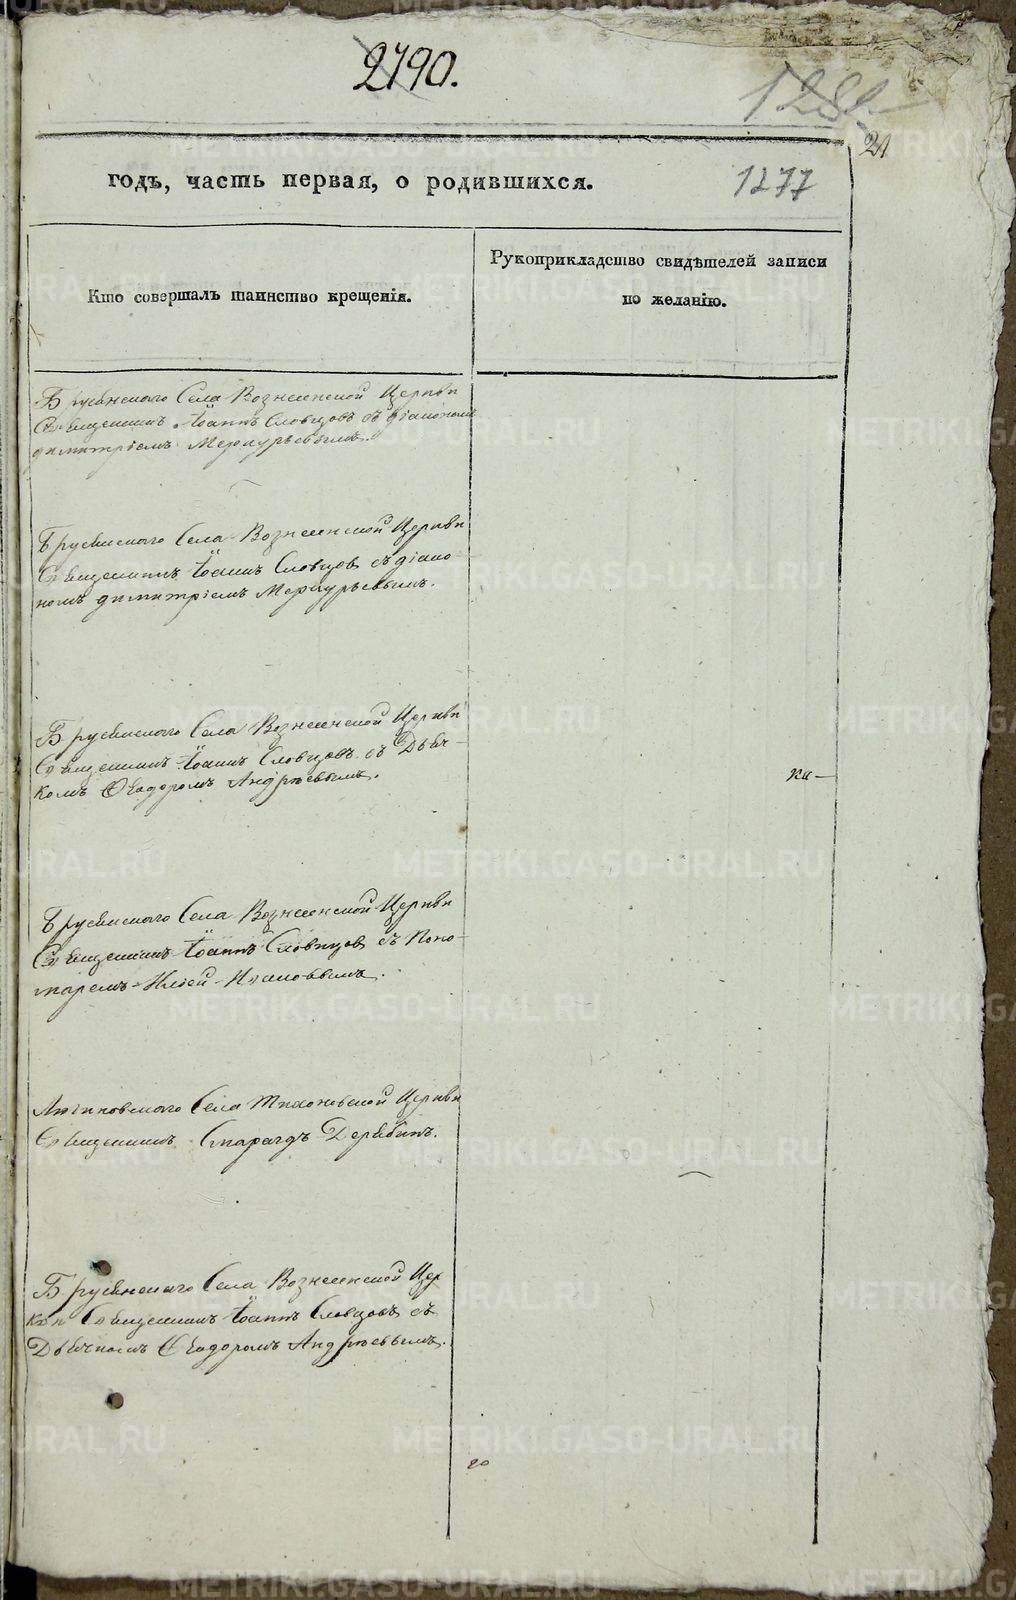 2790.
128
21
годъ, часть первая, о родившихся.
1277
Кто совершалъ таинство крещенія.
Рукоприкладство свидѣтелей записи
по желанію.
Брусянского Села Вознесенской Церкви
Священникъ Іоаннъ Словцовъ съ діакономъ
димитріемъ Меркурьевымъ.
Брусянского Села Вознесенской Церкви
Священникъ Іоаннъ Словцовъ съ діако-
номъ димитріемъ Меркурьевымъ.
Брусянского Села Вознесенской Церкви
Священникъ Іоаннъ Словцовъ съ Дьяч-
комъ Ѳеодоромъ Андреевымъ.
ки
Брусянского Села Вознесенской Церкви
Священникъ Іоаннъ Словцовъ съ Поно-
маремъ Иліей Ивановымъ.
Логиновского Села Тихоновской Церкви
Священникъ Смарагдъ Дерябинъ.
Брусянского Села Вознесенской Цер
кви Священникъ Іоаннъ Словцовъ съ
Дьячкомъ Ѳеодоромъ Андреевымъ.
METRIKI.GASO-URAL.RU